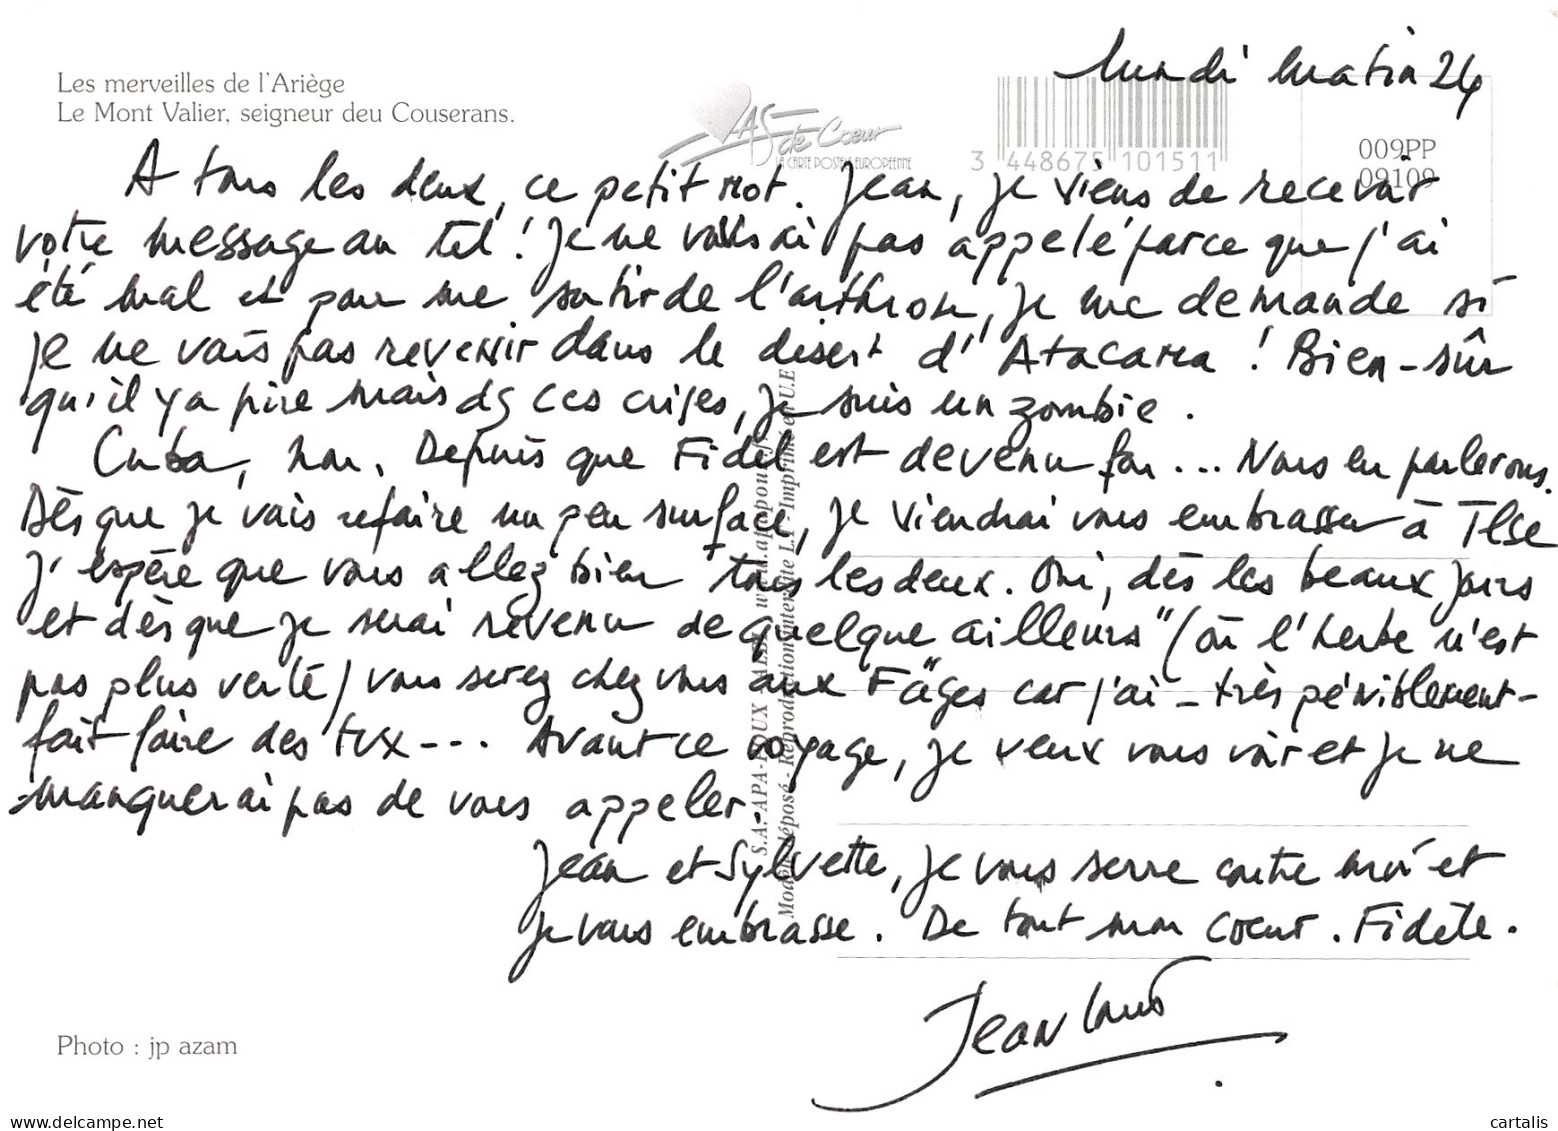 lundi matin 24
Les merveilles de l'Ariège
Le Mont Valier, seigneur deu Couserans.
AS de Cœur
LA CARTE POSTALE EUROPEENNE
3 448675 101511
009PP
09109
A tous les deux, ce petit mot. Jean, je viens de recevoir
votre message au tél ! Je ne vous ai pas appelé parce que j'ai
été mal et pour me sortir de l'arthrose, je me demande si
je ne vais pas revenir dans le désert d'Atacama ! Bien-sûr
qu'il y a pire mais ds ces crises, je suis un zombie.
Cuba, non. Depuis que Fidel est devenu fou... Nous en parlerons.
Dès que je vais refaire un peu surface, je viendrai vous embrasser à Tlse
J'espère que vous allez bien tous les deux. Oui, dès les beaux jours
et dès que je serai revenu de "quelque ailleurs" (où l'herbe n'est
pas plus verte) vous serez chez vous aux Fäges car j'ai - très péniblement -
fait faire des tvx --- . Avant ce voyage, je veux vous voir et je ne
manquerai pas de vous appeler.
Jean et Sylvette, je vous serre contre moi et
je vous embrasse. De tout mon coeur. Fidèle.
Jean Louis
S.A. APA-POUX ALBI
Modèle déposé - Reproduction interdite
Imprimé en U.E
Photo : jp azam
delcampe.net
cartalis